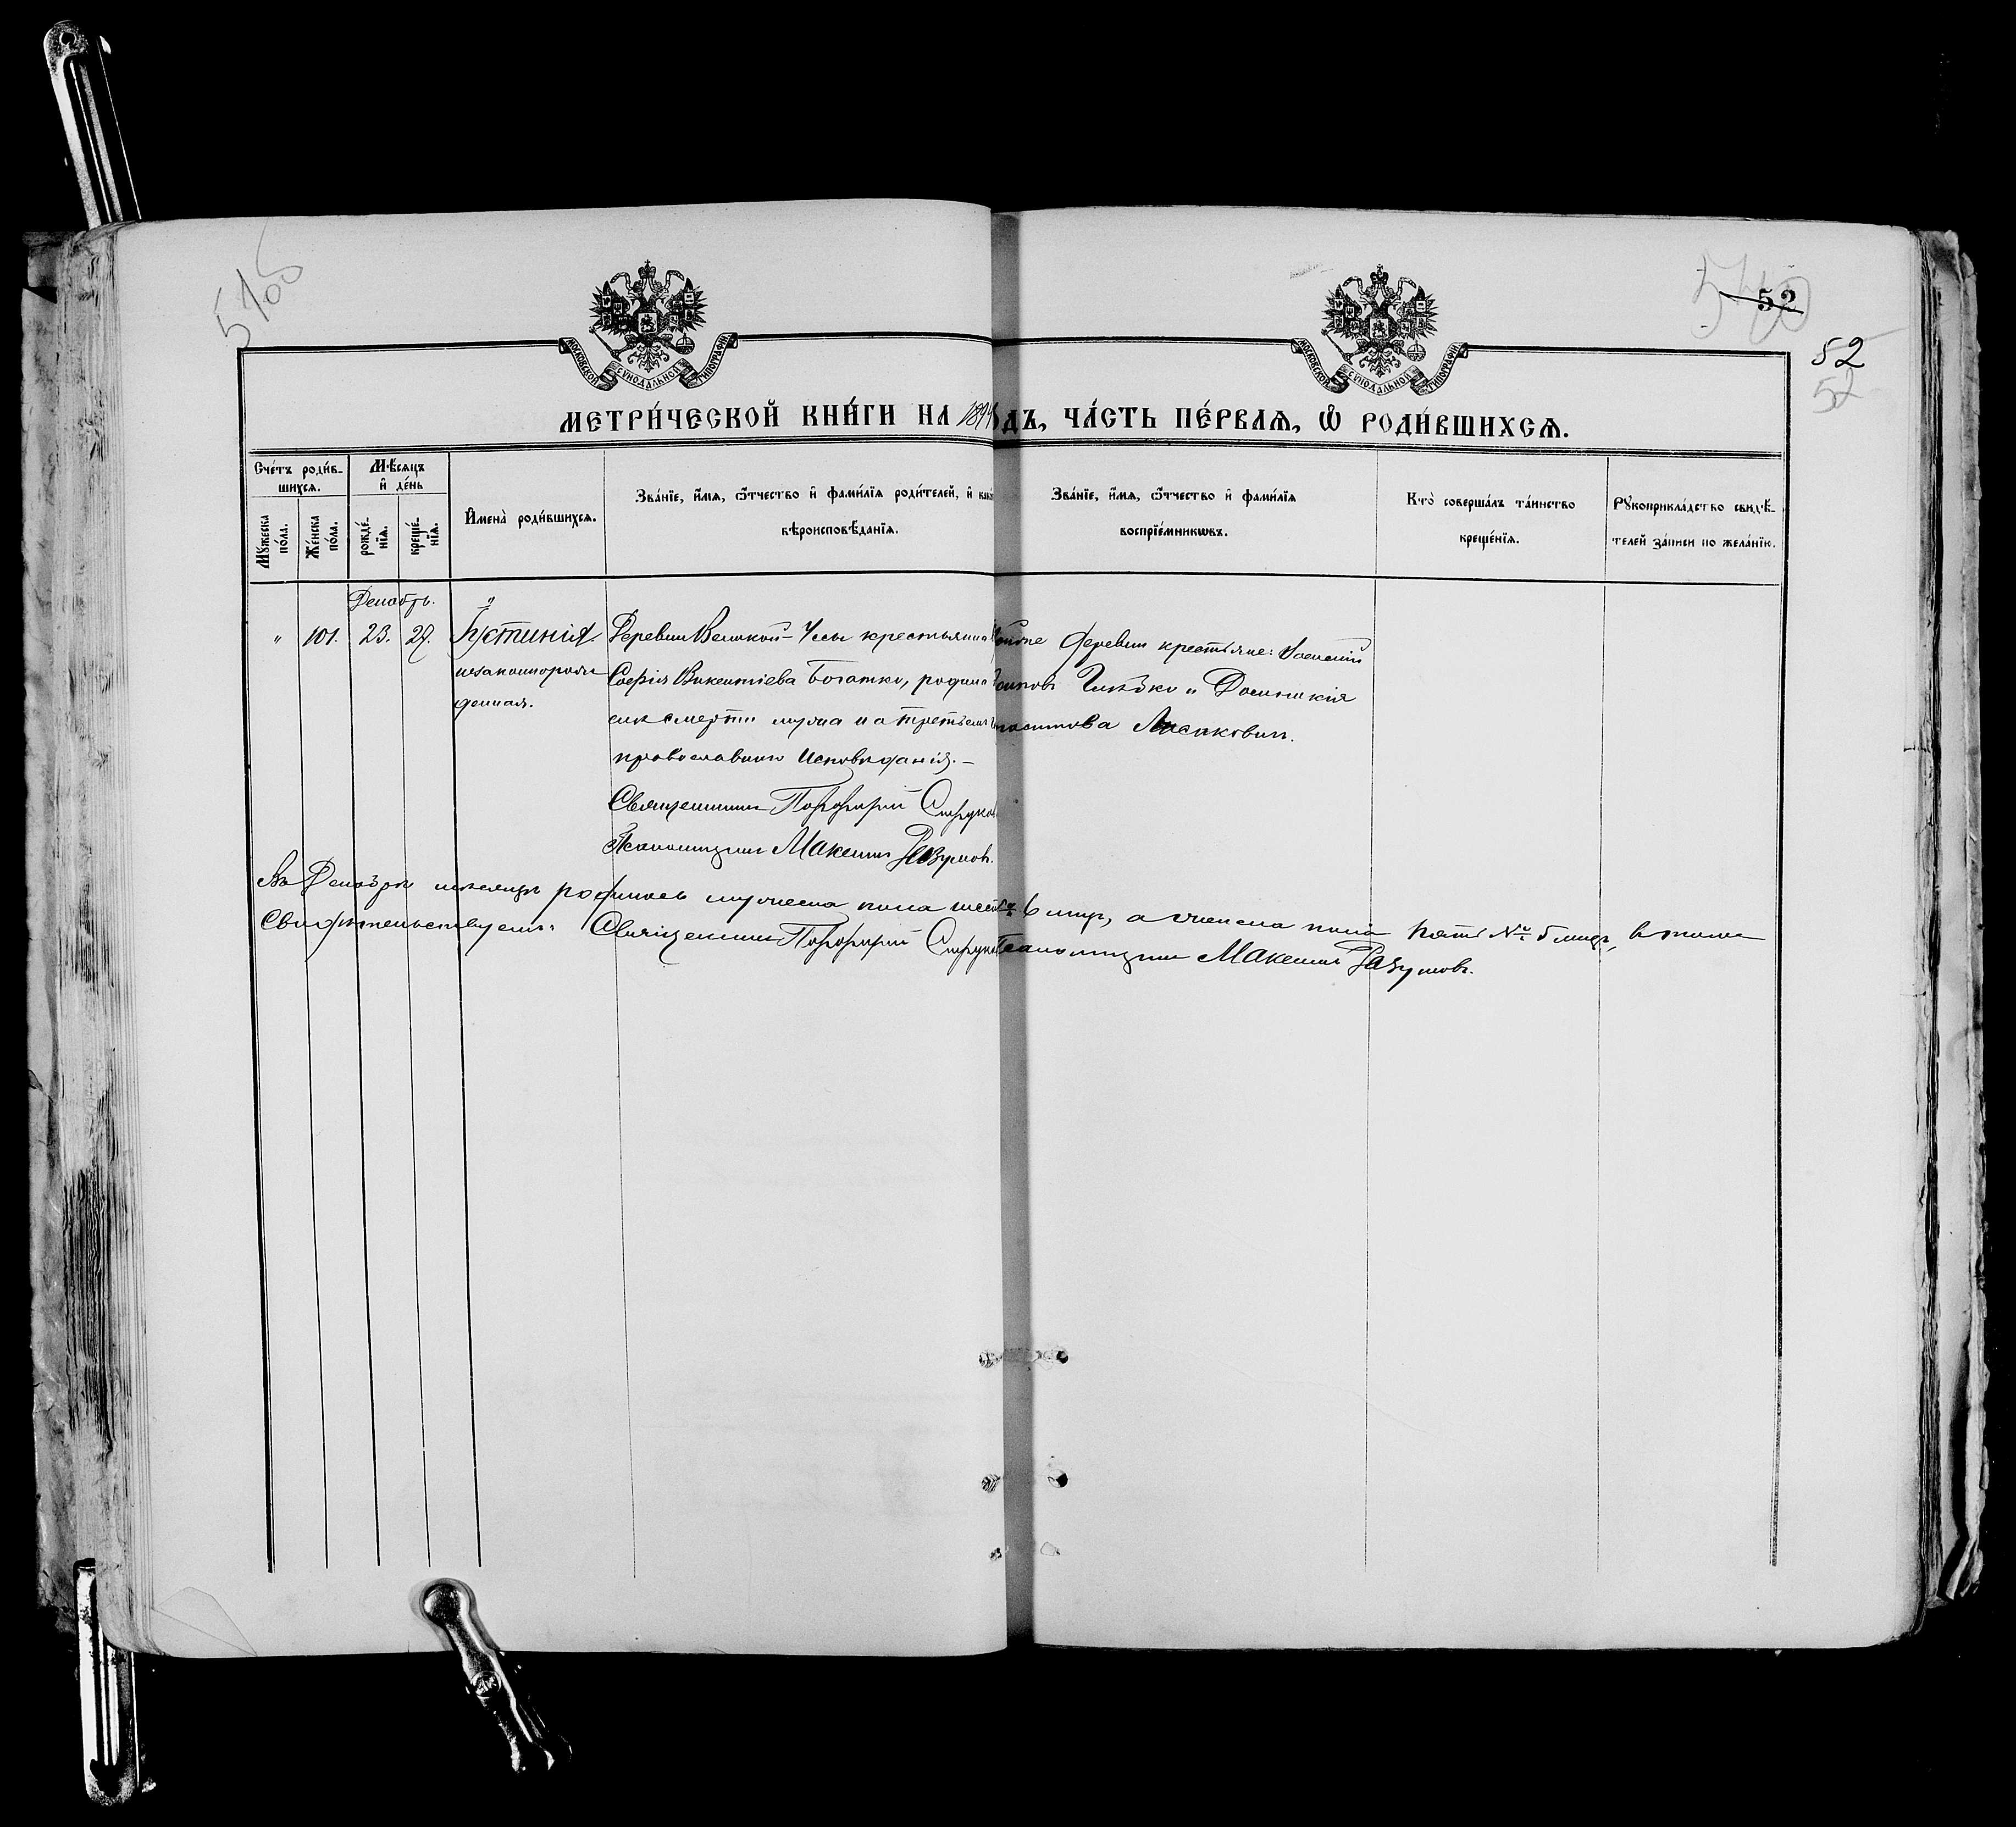 5706
52
52
52
МОСКОВСКОЙ СУНОДАЛЬНОЙ ТИПОГРАФІИ
МОСКОВСКОЙ СУНОДАЛЬНОЙ ТИПОГРАФІИ
МЕТРИ́ЧЕСКОЙ КНИ́ГИ НА 1894 ДЪ, ЧА́СТЬ ПЕ́РВАѦ, Ѡ҆ РОДИ́ВШИХСѦ.
Сче́тъ роди́в-
шихсѧ.
Мꙋ́жеска по́ла.
Же́нска по́ла.
Мѣ́сѧцъ и҆ де́нь
рожде́-
нїѧ.
креще́-
нїѧ.
И҆мена̀ роди́вшихсѧ.
Зва́нїе, и҆́мѧ, ѻ҆́тчество и҆ фами́лїѧ роди́телей, и҆
вѣроисповѣ́данїѧ.
Зва́нїе, и҆́мѧ, ѻ҆́тчество и҆ фами́лїѧ
воспрїе́мникѡвъ.
Кто̀ соверша́лъ та́инство
креще́нїѧ.
Рꙋкоприкла́дство свидѣ́-
телей за́писи по жела́нїю.
Декабрь.
" 101. 23. 27. Іустинія
незаконнорож-
денная.
Деревни Великой-Уссы крестьянка
Софія Викентіева Богатко, родила
смерти мужа на третьем
православнаго исповѣданія.-
Священникъ Порфирій
Псаломщикъ Максимъ Разумовъ.
деревни крестьяне:
Лисаковичъ.
Въ Декабрѣ мѣсяцѣ родилось мужеска пола шесть № 6 мл., а женска пола пять № 5 млад., в томъ
Свидѣтельствуемъ: Священникъ Порфирій Псаломщикъ Максимъ Разумовъ.